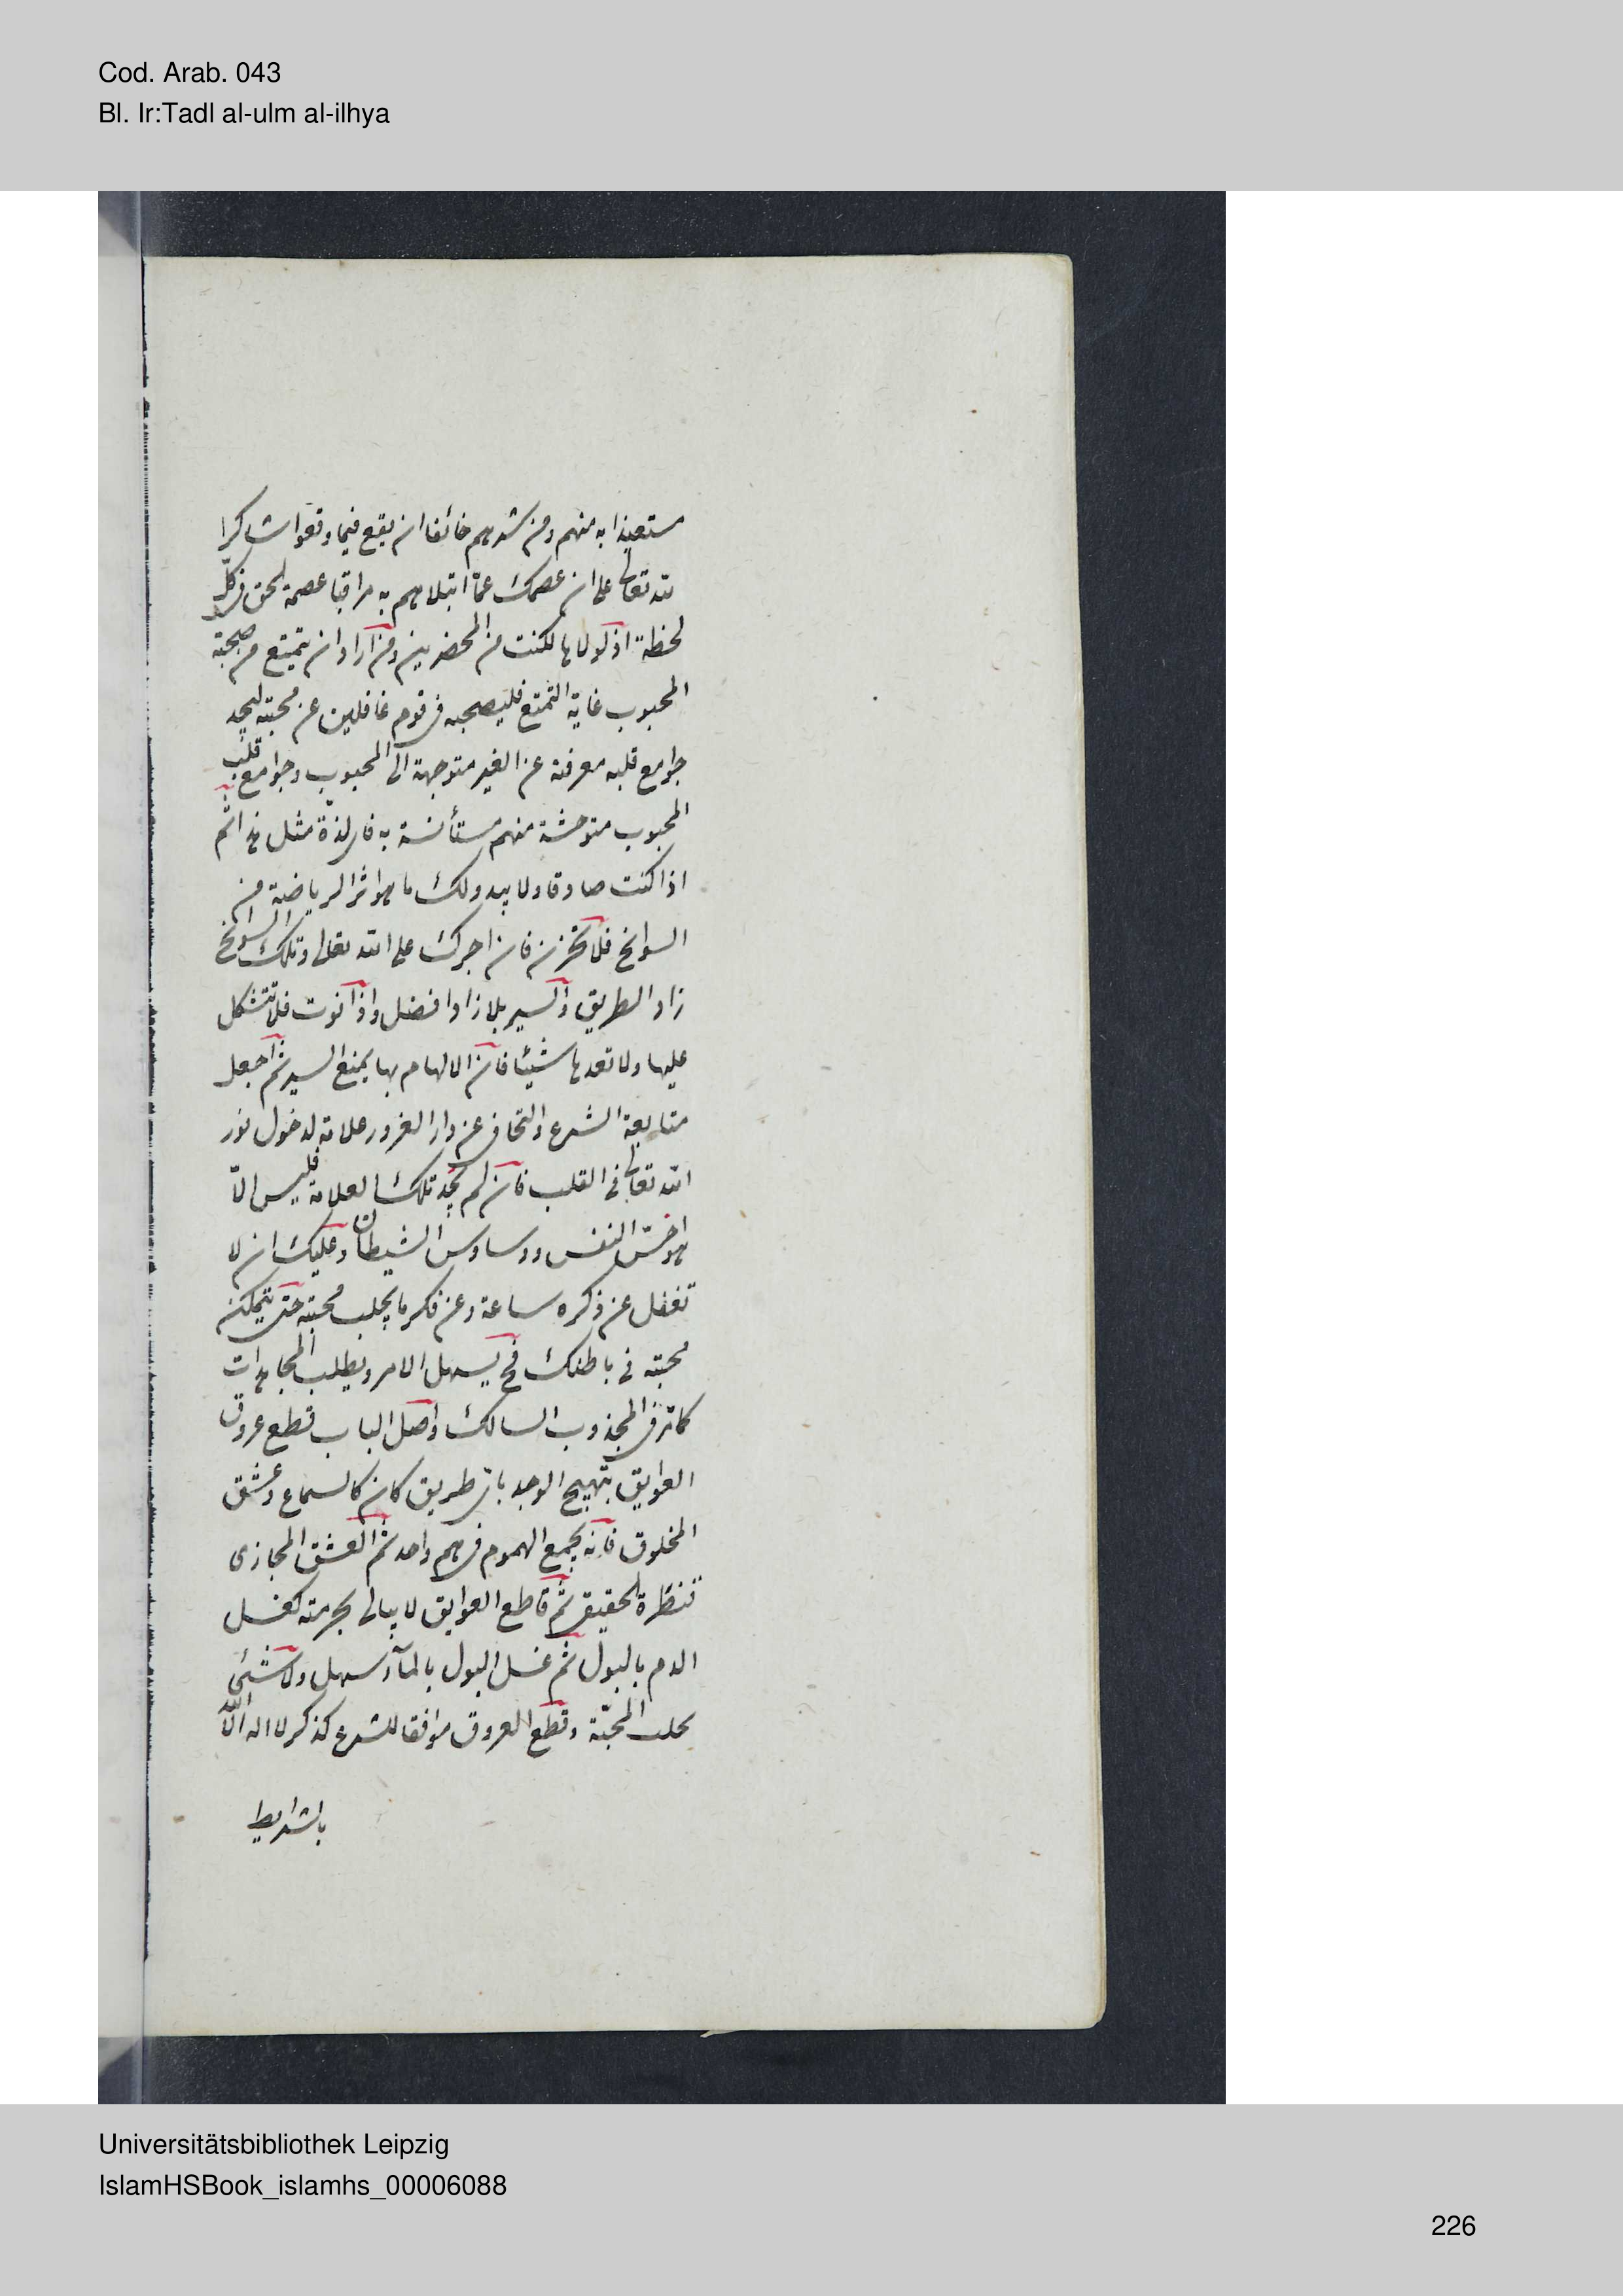 Cod. Arab. 043
Bl. Ir:Tadl al-ulm al-ilhya
مستعيذا به منهم ومن شرهم خائفا ان يقع فيما وقعوا شاكرا
لله تعالى على ان عصمك عمّا ابتلاهم به مراقبا عصمة الحق فى كلّ
لحظة اذ لولاها لكنت من المحضرين ومن اراد ان يتمتع من صحبة
المحبوب غاية التمتع فليصحبه فى قوم غافلين عن محبته ليجد
جوامع قلبه معرفة عن الغير متوجهة الى المحبوب وجوامع قلب
المحبوب متوحشة منهم مستأنسة به فاى لذّة مثل هذا ثم
اذا كنت صادقا ولا يبدو لك ما هو اثر الرياضة من
السوانح فلا تحزن فان اجرك على الله تعالى وتلك السوانح
زاد الطريق والسير بلا زاد افضل واذا فلا تتشكل
عليها ولا تعدها شيئا فان الالهام بها يمنع السير ثم اجعل
متابعة الشرع والتجافى عن دار الغرور علامة لدخول نور
الله تعالى فى القلب فان لم تجد تلك العلامة فليس الّا
هواجس النفس ووساوس الشيطان وعليك ان لا
تغفل عن ذكره ساعة وعن فكر ما يجلب محبته حتى يتمكن
محبته فى باطنك فح يسهل الامر ويطلب المجاهدات
كما ترى المجذوب السالك واصل الباب قطع عروق
العوايق بتهييج الوجد باى طريق كان كالسماع وعشق
المخلوق فانه يجمع الهموم فى هم واحد ثم العشق المجازى
قنطرة الحقيقى ثم قاطع العوايق لا يبالى بحرمته كغسل
الدم بالبول ثم غسل البول بالمآء سهل ولا شئ
يجلب المحبّة وقطع العروق موافقا للشرع كذكر لا اله الّا الله
بالشرايط
Universitätsbibliothek Leipzig
IslamHSBook_islamhs_00006088
226